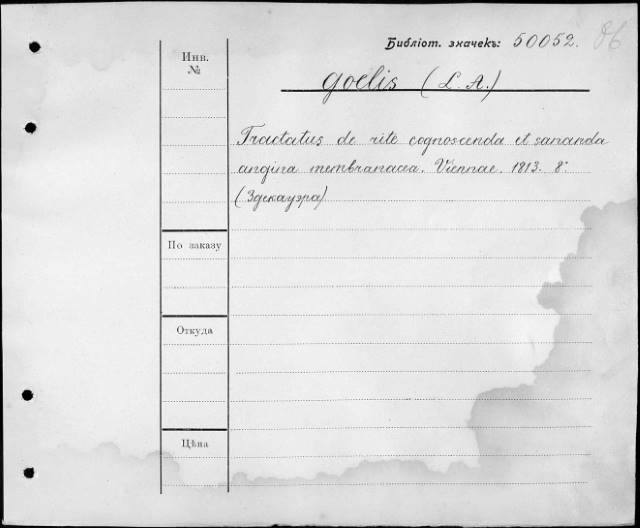 Библіот. значекъ: 50052. 86
Инв. №
Goelis (L. A.)
Tractatus de rite cognoscenda et sananda
angina membranacea. Viennae. 1813. 8°.
(Здекауэра)
По заказу
Откуда
Цѣна